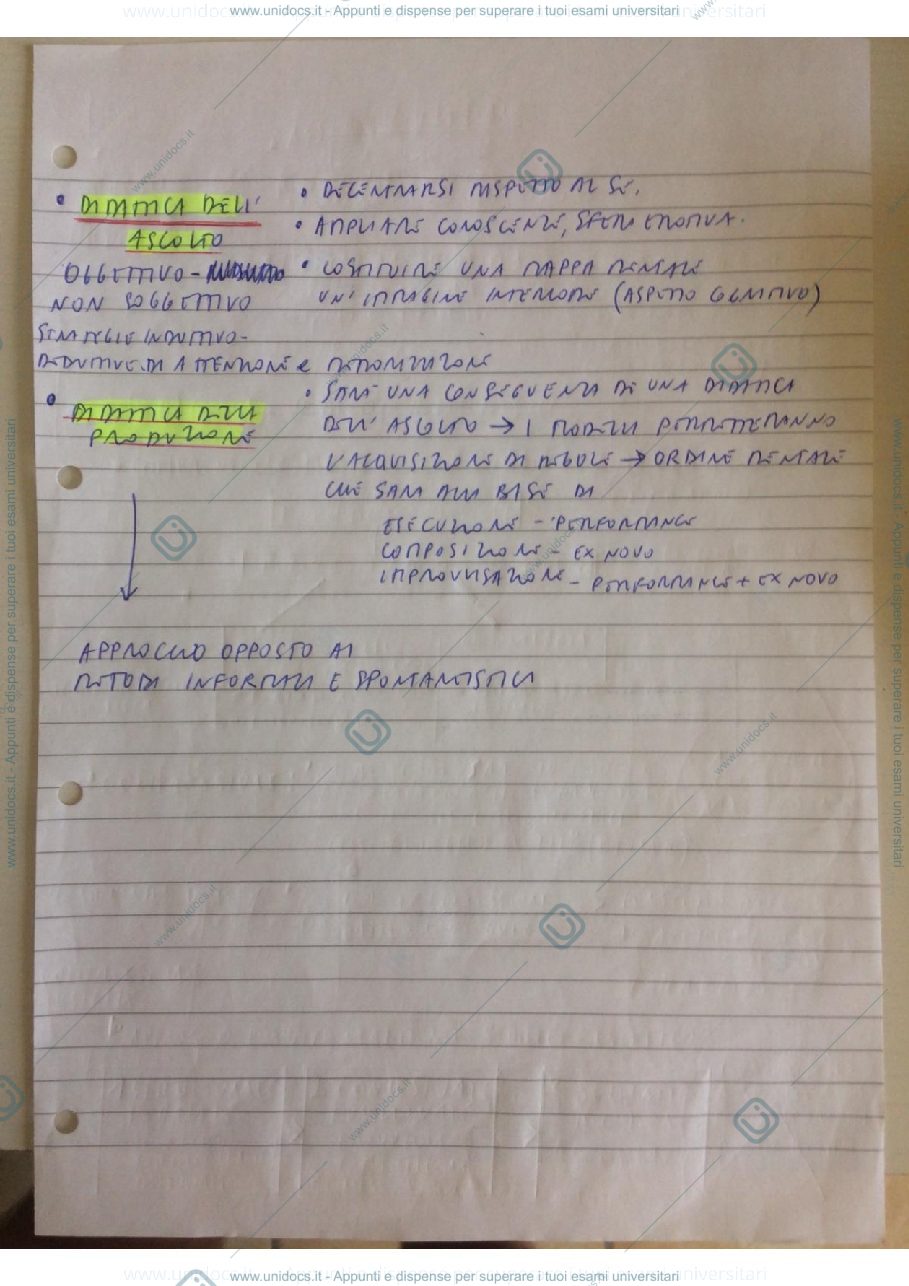 www.unidocs.it - Appunti e dispense per superare i tuoi esami universitari
• DIDATTICA DELL'
ASCOLTO
OGGETTIVO -
NON SOGGETTIVO
STRATEGIE INDUTTIVO-
DEDUTTIVE DI ATTENZIONE e MEMORIZZAZIONE
• DECENTRARSI RISPETTO AL SÉ.
• AMPLIARE CONOSCENZE, SFERA EMOTIVA.
• COSTITUIRE UNA MAPPA MENTALE
UN'IMMAGINE INTERIORE (ASPETTO COGNITIVO)
• DIDATTICA DELLA
PRODUZIONE
• SARÀ UNA CONSEGUENZA DI UNA DIDATTICA
DELL'ASCOLTO → I MODELLI PERMETTERANNO
L'ACQUISIZIONE DI REGOLE → ORDINE MENTALE
CHE SARÀ ALLA BASE DI
ESECUZIONE - PERFORMANCE
COMPOSIZIONE - EX NOVO
IMPROVVISAZIONE - PERFORMANCE + EX NOVO
APPROCCIO OPPOSTO AI
METODI INFORMALI E SPONTANEISTICI
www.unidocs.it - Appunti e dispense per superare i tuoi esami universitari